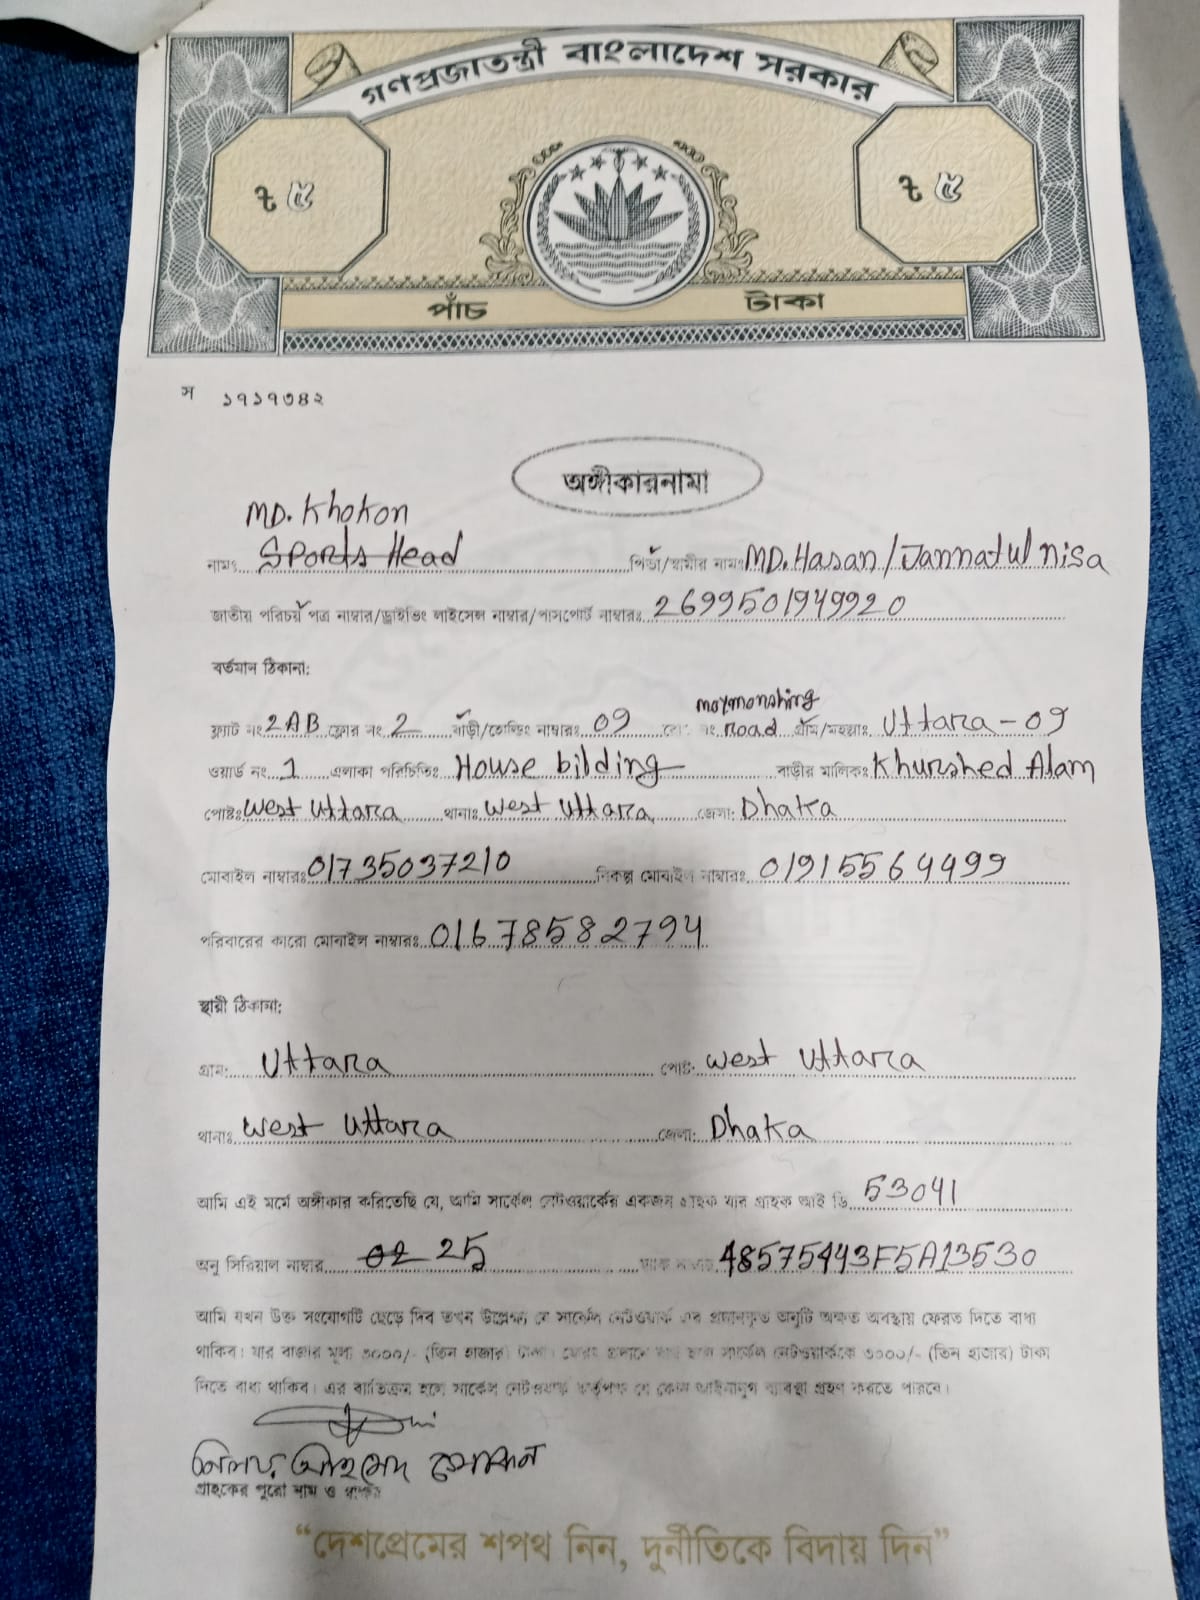 গণপ্রজাতন্ত্রী বাংলাদেশ সরকার
৳ ৫ ৳ ৫
পাঁচ টাকা
স ১৭১৭৩৪২
অঙ্গীকারনামা
MD. Khokon
নামঃ Sports Head পিতা/স্বামীর নামঃ MD. Hasan / Jannatul nisa
জাতীয় পরিচয় পত্র নাম্বার/ড্রাইভিং লাইসেন্স নাম্বার/পাসপোর্ট নাম্বারঃ 2699501949920
বর্তমান ঠিকানা:
moymonshing
ফ্ল্যাট নং 2AB ফ্লোর নং 2 বাড়ী/হোল্ডিং নাম্বারঃ 09 নং road গ্রাম/মহল্লাঃ Uttara - 09
ওয়ার্ড নং 1 এলাকা পরিচিতিঃ House bilding বাড়ীর মালিকঃ Khurshed Alam
পোষ্টঃ West Uttara থানাঃ West Uttara জেলা: Dhaka
মোবাইল নাম্বারঃ 01735037210 বিকল্প মোবাইল নাম্বারঃ 01915564499
পরিবারের কারো মোবাইল নাম্বারঃ 01678582794
স্থায়ী ঠিকানা:
গ্রাম: Uttara পোষ্ট: West Uttara
থানাঃ West Uttara জেলা: Dhaka
আমি এই মর্মে অঙ্গীকার করিতেছি যে, আমি সার্কেল নেটওয়ার্কের একজন গ্রাহক যার গ্রাহক আই ডি 53041
অনু সিরিয়াল নাম্বার 02 25 48575443F5A13530
আমি যখন উক্ত সংযোগটি ছেড়ে দিব তখন উল্লেক্ষ্য যে সার্কেল নেটওয়ার্ক এর প্রদানকৃত অনুটি অক্ষত অবস্থায় ফেরত দিতে বাধ্য
থাকিব। যার বাজার মূল্য ৩০০০/- (তিন হাজার) টাকা। সার্কেল নেটওয়ার্ককে ৩০০০/- (তিন হাজার) টাকা
দিতে বাধ্য থাকিব। এর ব্যতিক্রম হলে সার্কেল নেটওয়ার্ক কর্তৃপক্ষ যে কোন আইনানুগ ব্যবস্থা গ্রহণ করতে পারবে।
আহমেদ খোকন
গ্রাহকের পুরো নাম ও স্বাক্ষর
“দেশপ্রেমের শপথ নিন, দুর্নীতিকে বিদায় দিন”